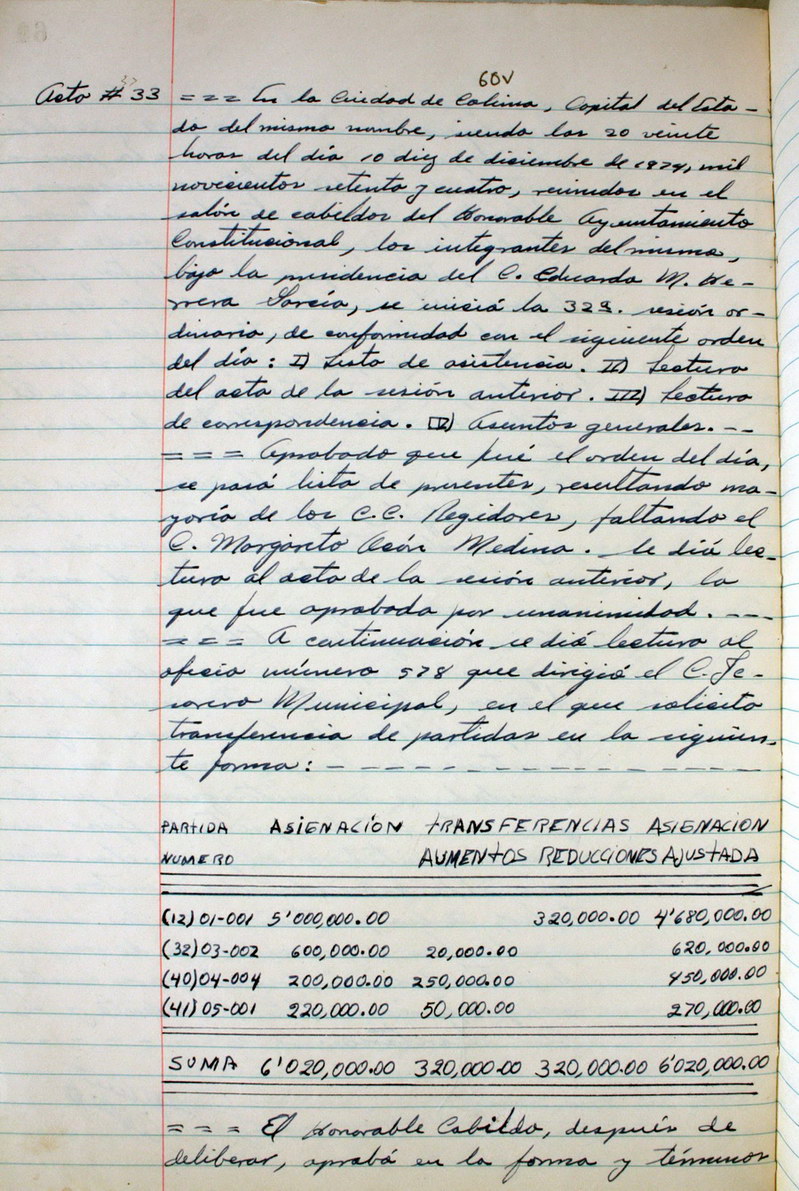 60V
Acta # 33 = = = En la Ciudad de Colima, Capital del Esta-
do del mismo nombre, siendo las 20 veinte
horas del día 10 diez de diciembre de 1974, mil
novecientos setenta y cuatro, reunidos en el
salón de cabildos del Honorable Ayuntamiento
Constitucional, los integrantes del mismo,
bajo la presidencia del C. Eduardo M. He-
rrera García, se inició la 32a. sesión or-
dinaria, de conformidad con el siguiente orden
del día: I) Lista de asistencia. II) Lectura
del acta de la sesión anterior. III) Lectura
de correspondencia. IV) Asuntos generales. - -
= = = Aprobado que fué el orden del día,
se pasó lista de presentes, resultando ma-
yoría de los C.C. Regidores, faltando el
C. Margarito Osón Medina. Se dió lec-
tura al acta de la sesión anterior, la
que fue aprobada por unanimidad. - - -
= = = A continuación se dió lectura al
oficio número 578 que dirigió el C. Te-
sorero Municipal, en el que solicita
transferencia de partidas en la siguien-
te forma: - - - - - - - - - - - -
PARTIDA ASIGNACIÓN TRANSFERENCIAS ASIGNACION
NUMERO AUMENTOS REDUCCIONES AJUSTADA
(12) 01-001 5'000,000.00 320,000.00 4'680,000.00
(32) 03-002 600,000.00 20,000.00 620,000.00
(40) 04-004 200,000.00 250,000.00 450,000.00
(41) 05-001 220,000.00 50,000.00 270,000.00
SUMA 6'020,000.00 320,000.00 320,000.00 6'020,000.00
= = = El Honorable Cabildo, después de
deliberar, aprobó en la forma y términos